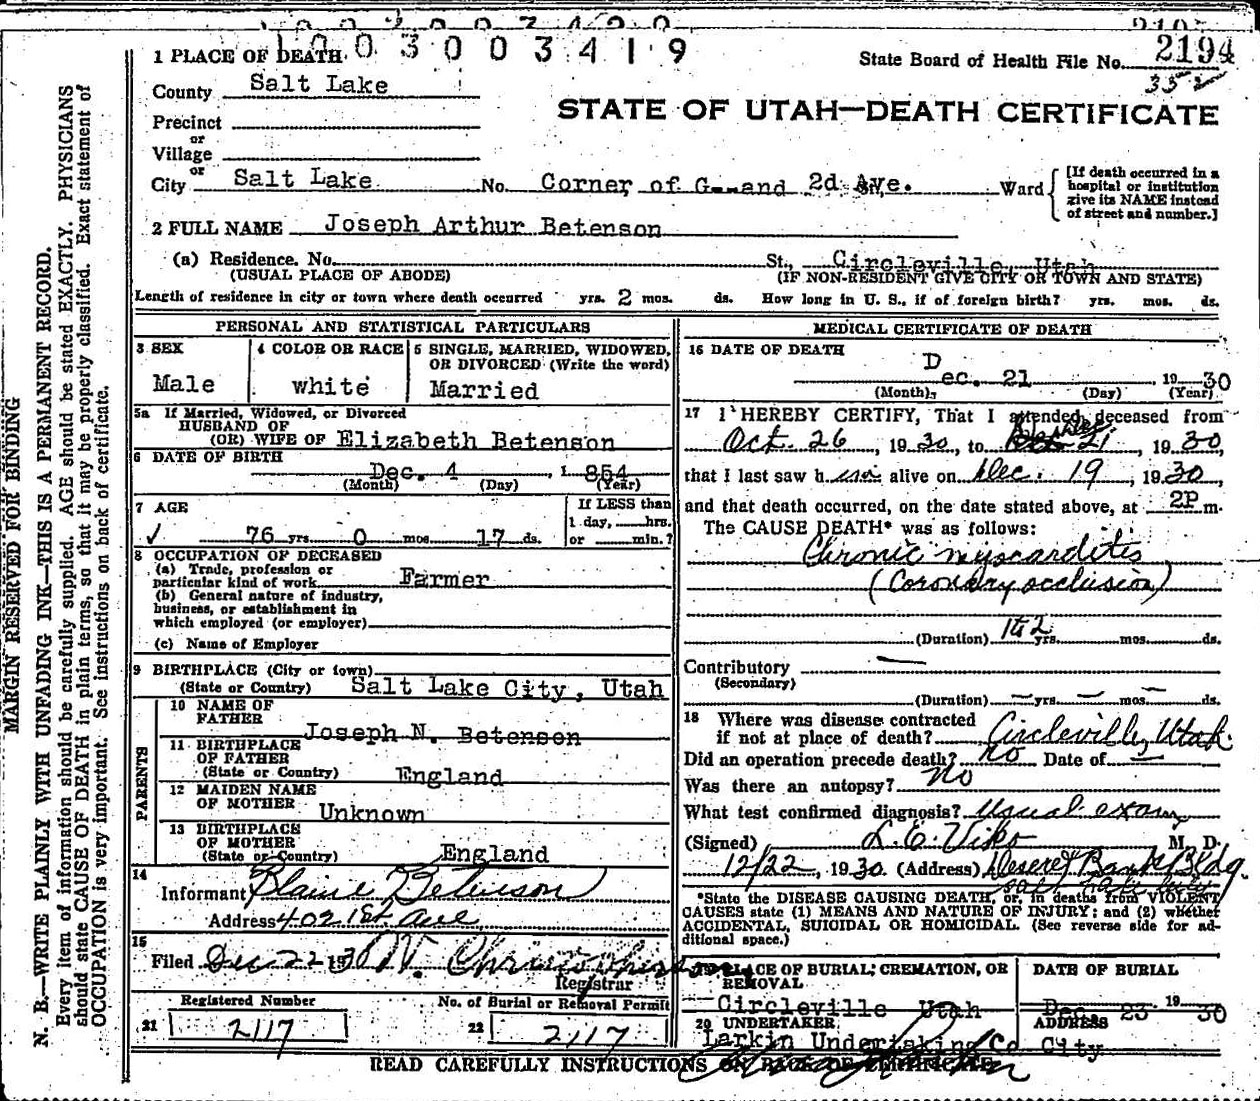 1003003419
2194
State Board of Health File No.
352
1 PLACE OF DEATH
County Salt Lake
STATE OF UTAH—DEATH CERTIFICATE
Precinct
or
Village
or
City Salt Lake No. Corner of G. and 2d Ave. Ward
[If death occurred in a hospital or institution give its NAME instead of street and number.]
2 FULL NAME Joseph Arthur Betenson
(a) Residence. No. St., Circleville, Utah
(USUAL PLACE OF ABODE) (IF NON-RESIDENT GIVE CITY OR TOWN AND STATE)
Length of residence in city or town where death occurred yrs. 2 mos. ds. How long in U. S., if of foreign birth? yrs. mos. ds.
PERSONAL AND STATISTICAL PARTICULARS
3 SEX
Male
4 COLOR OR RACE
white
5 SINGLE, MARRIED, WIDOWED, OR DIVORCED (Write the word)
Married
5a If Married, Widowed, or Divorced
HUSBAND OF
(OR) WIFE OF Elizabeth Betenson
6 DATE OF BIRTH
Dec. 4, 1854
(Month) (Day) (Year)
7 AGE
76 yrs 0 mos 17 ds.
If LESS than
1 day, hrs.
or min.?
8 OCCUPATION OF DECEASED
(a) Trade, profession or
particular kind of work Farmer
(b) General nature of industry,
business, or establishment in
which employed (or employer)
(c) Name of Employer
9 BIRTHPLACE (City or town)
(State or Country) Salt Lake City, Utah
PARENTS
10 NAME OF
FATHER
Joseph N. Betenson
11 BIRTHPLACE
OF FATHER
(State or Country) England
12 MAIDEN NAME
OF MOTHER
Unknown
13 BIRTHPLACE
OF MOTHER
(State or Country) England
14
Informant Blaine Betenson
Address 402 1st Ave
15
Filed Dec 22 1930
Registrar
Registered Number
21 2117
No. of Burial or Removal Permit
22 2117
MEDICAL CERTIFICATE OF DEATH
16 DATE OF DEATH
Dec. 21 1930
(Month) (Day) (Year)
17 I HEREBY CERTIFY, That I attended deceased from
Oct. 26, 1930, to Dec 21, 1930,
that I last saw him alive on Dec. 19, 1930,
and that death occurred, on the date stated above, at 2P m.
The CAUSE DEATH* was as follows:
Chronic myocarditis
(Coronary occlusion)
(Duration) 1 to 2 yrs. mos. ds.
Contributory —
(Secondary)
(Duration) — yrs. — mos. — ds.
18 Where was disease contracted
if not at place of death? Circleville, Utah.
Did an operation precede death? No Date of —
Was there an autopsy? No
What test confirmed diagnosis? Usual exam
(Signed) L. E. Viko M. D.
12/22, 1930 (Address) Deseret Bank Bldg.
Salt Lake City
*State the DISEASE CAUSING DEATH, or, in deaths from VIOLENT
CAUSES state (1) MEANS AND NATURE OF INJURY; and (2) whether
ACCIDENTAL, SUICIDAL OR HOMICIDAL. (See reverse side for ad-
ditional space.)
19 PLACE OF BURIAL, CREMATION, OR
REMOVAL
Circleville Utah
DATE OF BURIAL
Dec. 23 1930
20 UNDERTAKER
Larkin Undertaking Co
ADDRESS
City
READ CAREFULLY INSTRUCTIONS ON BACK OF CERTIFICATE
MARGIN RESERVED FOR BINDING
N. B.—WRITE PLAINLY WITH UNFADING INK—THIS IS A PERMANENT RECORD.
Every item of information should be carefully supplied. AGE should be stated EXACTLY. PHYSICIANS
should state CAUSE OF DEATH in plain terms, so that it may be properly classified. Exact statement of
OCCUPATION is very important. See instructions on back of certificate.